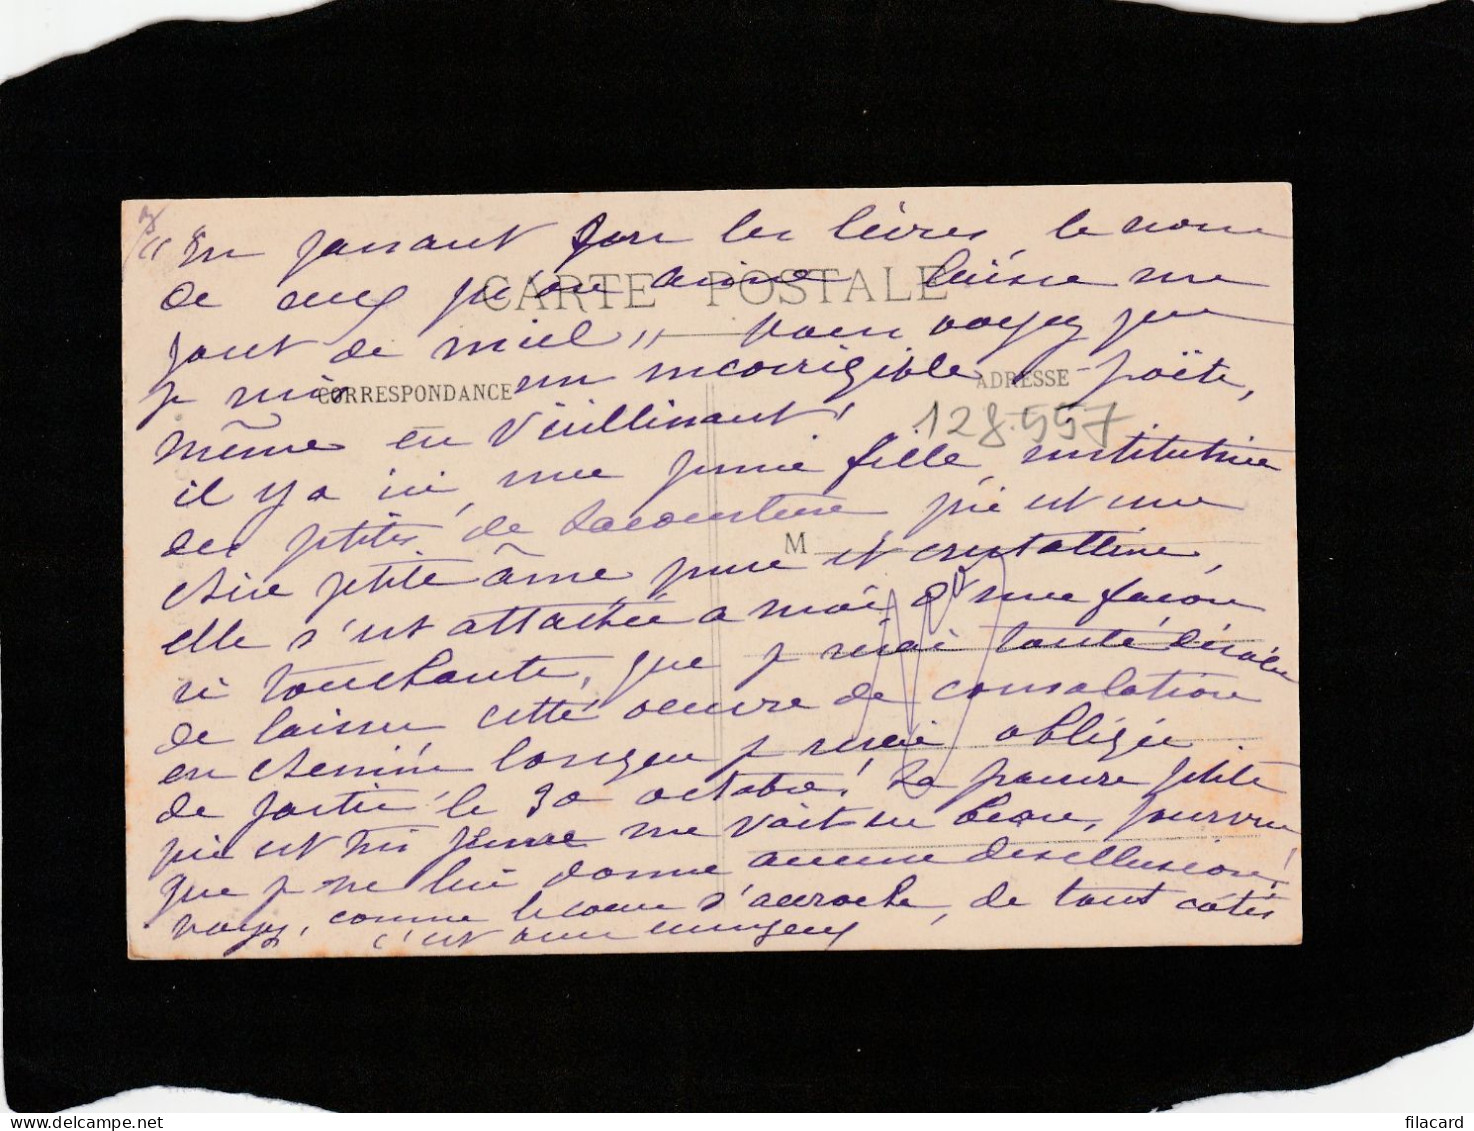 " En passant sur les lèvres le nom
de ceux qu'on aime laisse un
gout de miel " — vous voyez que
CARTE POSTALE
je suis un incorrigible poëte,
CORRESPONDANCE
ADRESSE
même en vieillissant!
128.557
il y a ici, une jeune fille institutrice
des petites de qui est une
M
chère petite âme pure et cristalline,
elle s'est attachée a moi d'une façon
si touchante, que je serai toute désolée
de laisser cette oeuvre de consolation
en chemin, lorsque je serai obligée
de partir le 30 octobre! La pauvre petite
qui est très jeune me voit en beau, pourvu
que je ne lui donne aucune desillusion!
voyez, comme le coeur s'accroche, de tout côtés
c'est
filacard